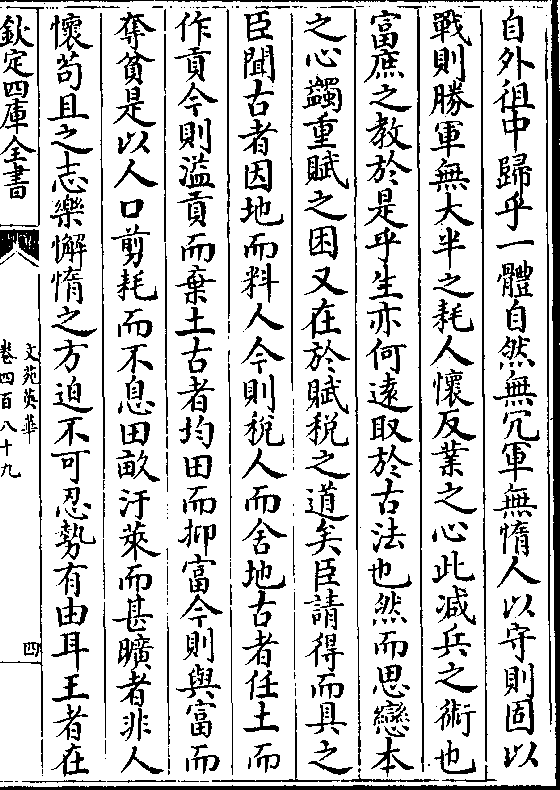 自外徂中歸乎一體自然無冗軍無惰人以守則固以
戰則勝軍無大半之耗人懷反業之心此減兵之術也
富庶之教於是乎生亦何遠取於古法也然而思戀本
之心蠲重賦之困又在於賦稅之道矣臣請得而具之
臣聞古者因地而料人今則稅人而舍地古者任土而
作貢今則濫貢而棄土古者均田而抑富今則與富而
奪貧是以人口剪耗而不息田畝汙萊而甚曠者非人
懷苟且之志樂懈惰之方迫不可忍勢有由耳王者在
欽定四庫全書
文苑英華
卷四百八十九
四